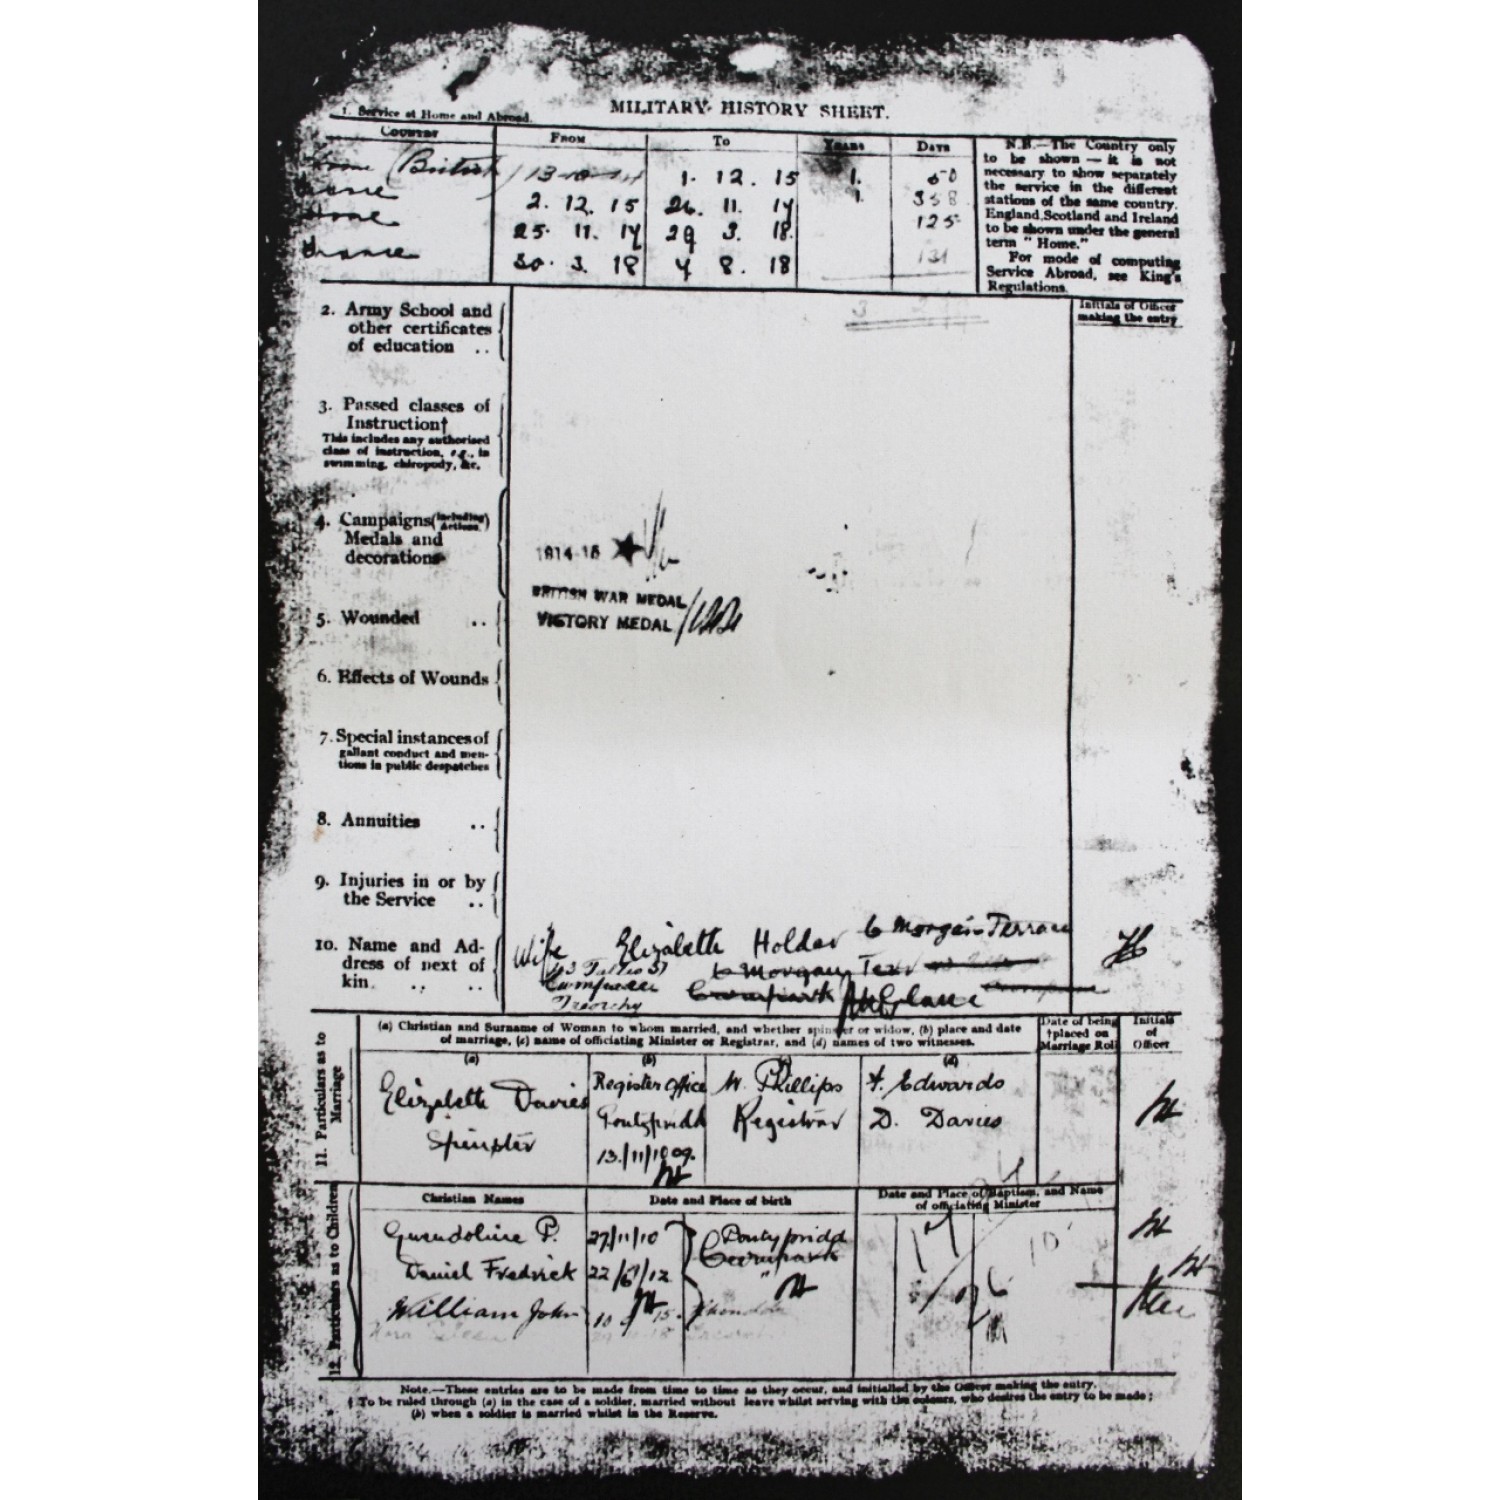 MILITARY HISTORY SHEET.
1. Service at Home and Abroad.
COUNTRY FROM TO YEARS DAYS
Home (British) 13 10 14 1. 12. 15 1. 50
France 2. 12. 15 24. 11. 17 1. 358
Home 25. 11. 17 29 3. 18. 125
France 30. 3. 18 7 8. 18 131
3
N.B.—The Country only
to be shown — it is not
necessary to show separately
the service in the different
stations of the same country.
England, Scotland and Ireland
to be shown under the general
term "Home."
For mode of computing
Service Abroad, see King's
Regulations.
Initials of Officer
making the entry
2. Army School and
other certificates
of education ..
3. Passed classes of
Instruction†
This includes any authorised
class of instruction, e.g., in
swimming, chiropody, &c.
4. Campaigns (including Actions)
Medals and
decorations
1914-15 ★
BRITISH WAR MEDAL
VICTORY MEDAL
5. Wounded ..
6. Effects of Wounds
7. Special instances of
gallant conduct and men-
tions in public despatches
8. Annuities ..
9. Injuries in or by
the Service ..
10. Name and Ad-
dress of next of
kin. .. ..
Wife Elizabeth Holder 6 Morgan Terrace
6 Morgan Terr
Cwmpark
Treorchy
11. Particulars as to
Marriage
(a) Christian and Surname of Woman to whom married, and whether spinster or widow, (b) place and date
of marriage, (c) name of officiating Minister or Registrar, and (d) names of two witnesses.
Date of being
†placed on
Marriage Roll
Initials
of
Officer
(a) (b) (c) (d)
Elizabeth Davies Register Office W. Phillips F. Edwards
Spinster Pontypridd Registrar D. Davies
13/11/1909.
12. Particulars as to Children
Christian Names Date and Place of birth Date and Place of Baptism, and Name
of officiating Minister
Gwendoline P. 27/11/10 Pontypridd
Cwmpark
Daniel Fredrick 22/6/12 "
William John 10 15. Rhondda
Note.—These entries are to be made from time to time as they occur, and initialled by the Officer making the entry.
† To be ruled through (a) in the case of a soldier, married without leave whilst serving with the colours, who desires the entry to be made;
(b) when a soldier is married whilst in the Reserve.